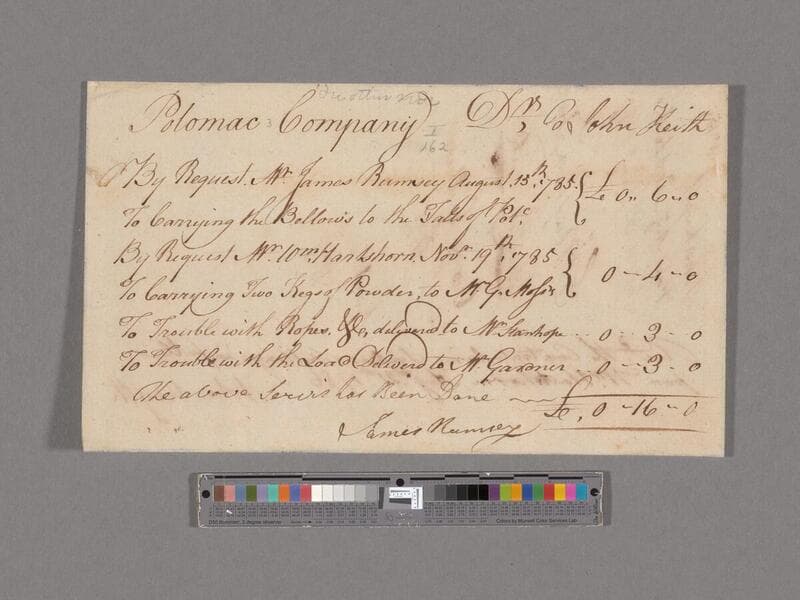 Potomac Company Dr, To John Keith
I
162
By Request Mr. James Rumsey August 15th, 1785 } £ 0 " 6 " 0
To Carrying the Bellows to the Falls of Potc
By Request Mr. Wm Hartshorn Novr. 19th, 1785 } 0 - 4 - 0
To Carrying Two Kegs of Powder, to Mr G. Moss's
To Trouble with Ropes, &c, delivered to Mr Stanhope .. 0 - 3 - 0
To Trouble with the Load Delivered to Mr Gardner .. 0 - 3 - 0
The above Servis has Been Done £, 0 - 16 - 0
James Rumsey